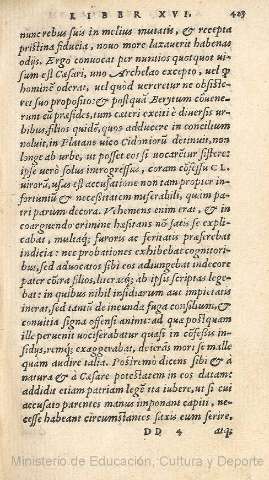 LIBER XVI. 423
nunc rebus suis in melius mutatis, & recepta
pristina fiducia, nouo more laxauerit habenas
odijs. Ergo conuocat per nuntios quotquot ui-
sum est Cæsari, uno Archelao excepto, uel q̃
homine oderat, uel quod uereretur ne obsiste-
ret suo proposito: & postquā Berytum conuene-
runt tū præsides, tum cæteri exciti è diuersis ur-
bibus, filios quidē, quos adducere in concilium
noluit, in Platane uico Sidoniorū detinuit, non
longe ab urbe, ut posset eos si uocarētur sistere:
ipse uerò solus introgressus, coram cōsessu CL
uirorū, usus est accusatione non tam propter in-
fortuniū & necessitatem miserabili, quam pa-
tri parum decora. Vehemens enim erat, & in
coarguendo crimine hæsitans nō satis se expli-
cabat, multaq́; furoris ac feritatis præferebat
indicia: nec probationes exhibebat cognitori-
bus, sed aduocatus sibi eos adiungebat indecore
pater cōtra filios, literasq́; ab ipsis scriptas lege-
bat: in quibus nihil insidiarum aut impietatis
inerat, sed tantū de ineunda fuga consilium, &
conuitia signa offensi animi: ad quæ postquam
ille peruenit uociferabatur quasi in cōfessū in-
sidijs, remq́; exaggerabat, deierās mori se malle
quam audire talia. Postremo dicens sibi & à
natura & à Cæsare potestatem in eos datam:
addidit etiam patriam legē ita iubere, ut si cui
accusato parentes manus imponant capiti, ne-
cesse habeant circumstantes saxis eum ferire,
DD 4 atq́;
Ministerio de Educación, Cultura y Deporte